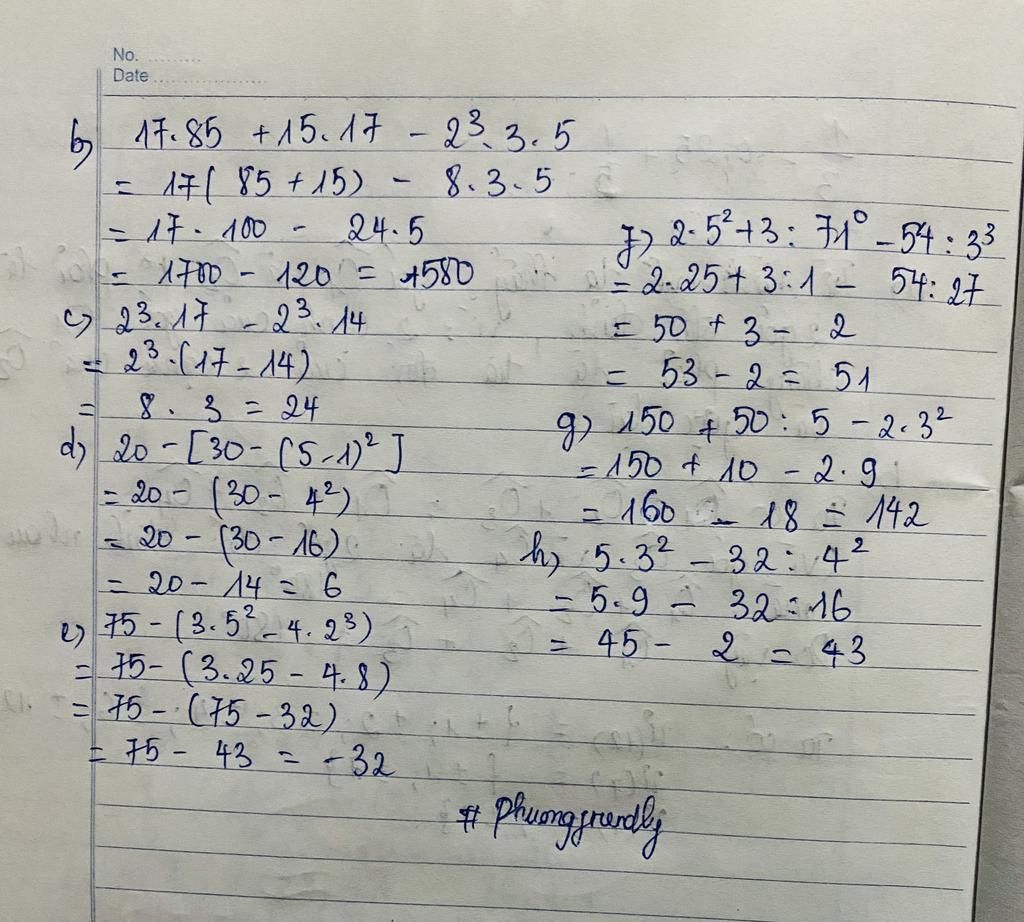 No. .........
Date ...................
b) 17.85 + 15.17 - 2³.3.5
= 17(85 + 15) - 8.3.5
= 17.100 - 24.5
= 1700 - 120 = 1580
c) 2³.17 - 2³.14
= 2³.(17 - 14)
= 8.3 = 24
d) 20 - [30 - (5-1)²]
= 20 - (30 - 4²)
= 20 - (30 - 16)
= 20 - 14 = 6
e) 75 - (3.5² - 4.2³)
= 75 - (3.25 - 4.8)
= 75 - (75 - 32)
= 75 - 43 = -32
f) 2.5² + 3 : 71⁰ - 54 : 3³
= 2.25 + 3 : 1 - 54 : 27
= 50 + 3 - 2
= 53 - 2 = 51
g) 150 + 50 : 5 - 2.3²
= 150 + 10 - 2.9
= 160 - 18 = 142
h) 5.3² - 32 : 4²
= 5.9 - 32 : 16
= 45 - 2 = 43